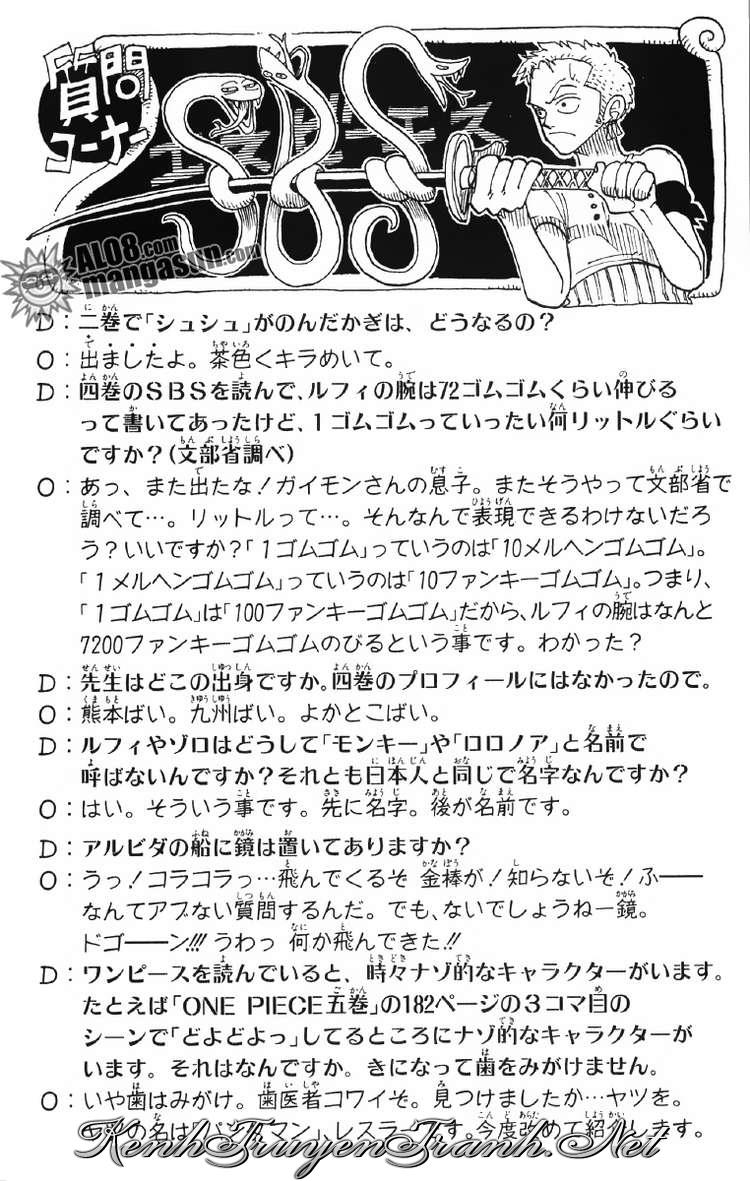 質問
コーナー
エスビーエス
SBS
AL08.com
mangasun.com
D：二巻で「シュシュ」がのんだかぎは、どうなるの？
O：出ましたよ。茶色くキラめいて。
D：四巻のSBSを読んで、ルフィの腕は72ゴムゴムくらい伸びる
って書いてあったけど、1ゴムゴムっていったい何リットルぐらい
ですか？(文部省調べ)
O：あっ、また出たな！ガイモンさんの息子。またそうやって文部省で
調べて…。リットルって…。そんなんで表現できるわけないだろ
う？いいですか？「1ゴムゴム」っていうのは「10メルヘンゴムゴム」。
「1メルヘンゴムゴム」っていうのは「10ファンキーゴムゴム」。つまり、
「1ゴムゴム」は「100ファンキーゴムゴム」だから、ルフィの腕はなんと
7200ファンキーゴムゴムのびるという事です。わかった？
D：先生はどこの出身ですか。四巻のプロフィールにはなかったので。
O：熊本ばい。九州ばい。よかとこばい。
D：ルフィやゾロはどうして「モンキー」や「ロロノア」と名前で
呼ばないんですか？それとも日本人と同じで名字なんですか？
O：はい。そういう事です。先に名字。後が名前です。
D：アルビダの船に鏡は置いてありますか？
O：うっ！コラコラっ…飛んでくるぞ 金棒が！知らないぞ！ふ——
なんてアブない質問するんだ。でも、ないでしょうねー鏡。
ドゴ——ン!!! うわっ 何か飛んできた!!
D：ワンピースを読んでいると、時々ナゾ的なキャラクターがいます。
たとえば「ONE PIECE五巻」の182ページの3コマ目の
シーンで「どよどよっ」してるところにナゾ的なキャラクターが
います。それはなんですか。きになって歯をみがけません。
O：いや歯はみがけ。歯医者コワイぞ。見つけましたか…ヤツを。
の名は「パンダマン」、レスラーです。今度改めて紹介します。
KenhTruyenTranh.Net